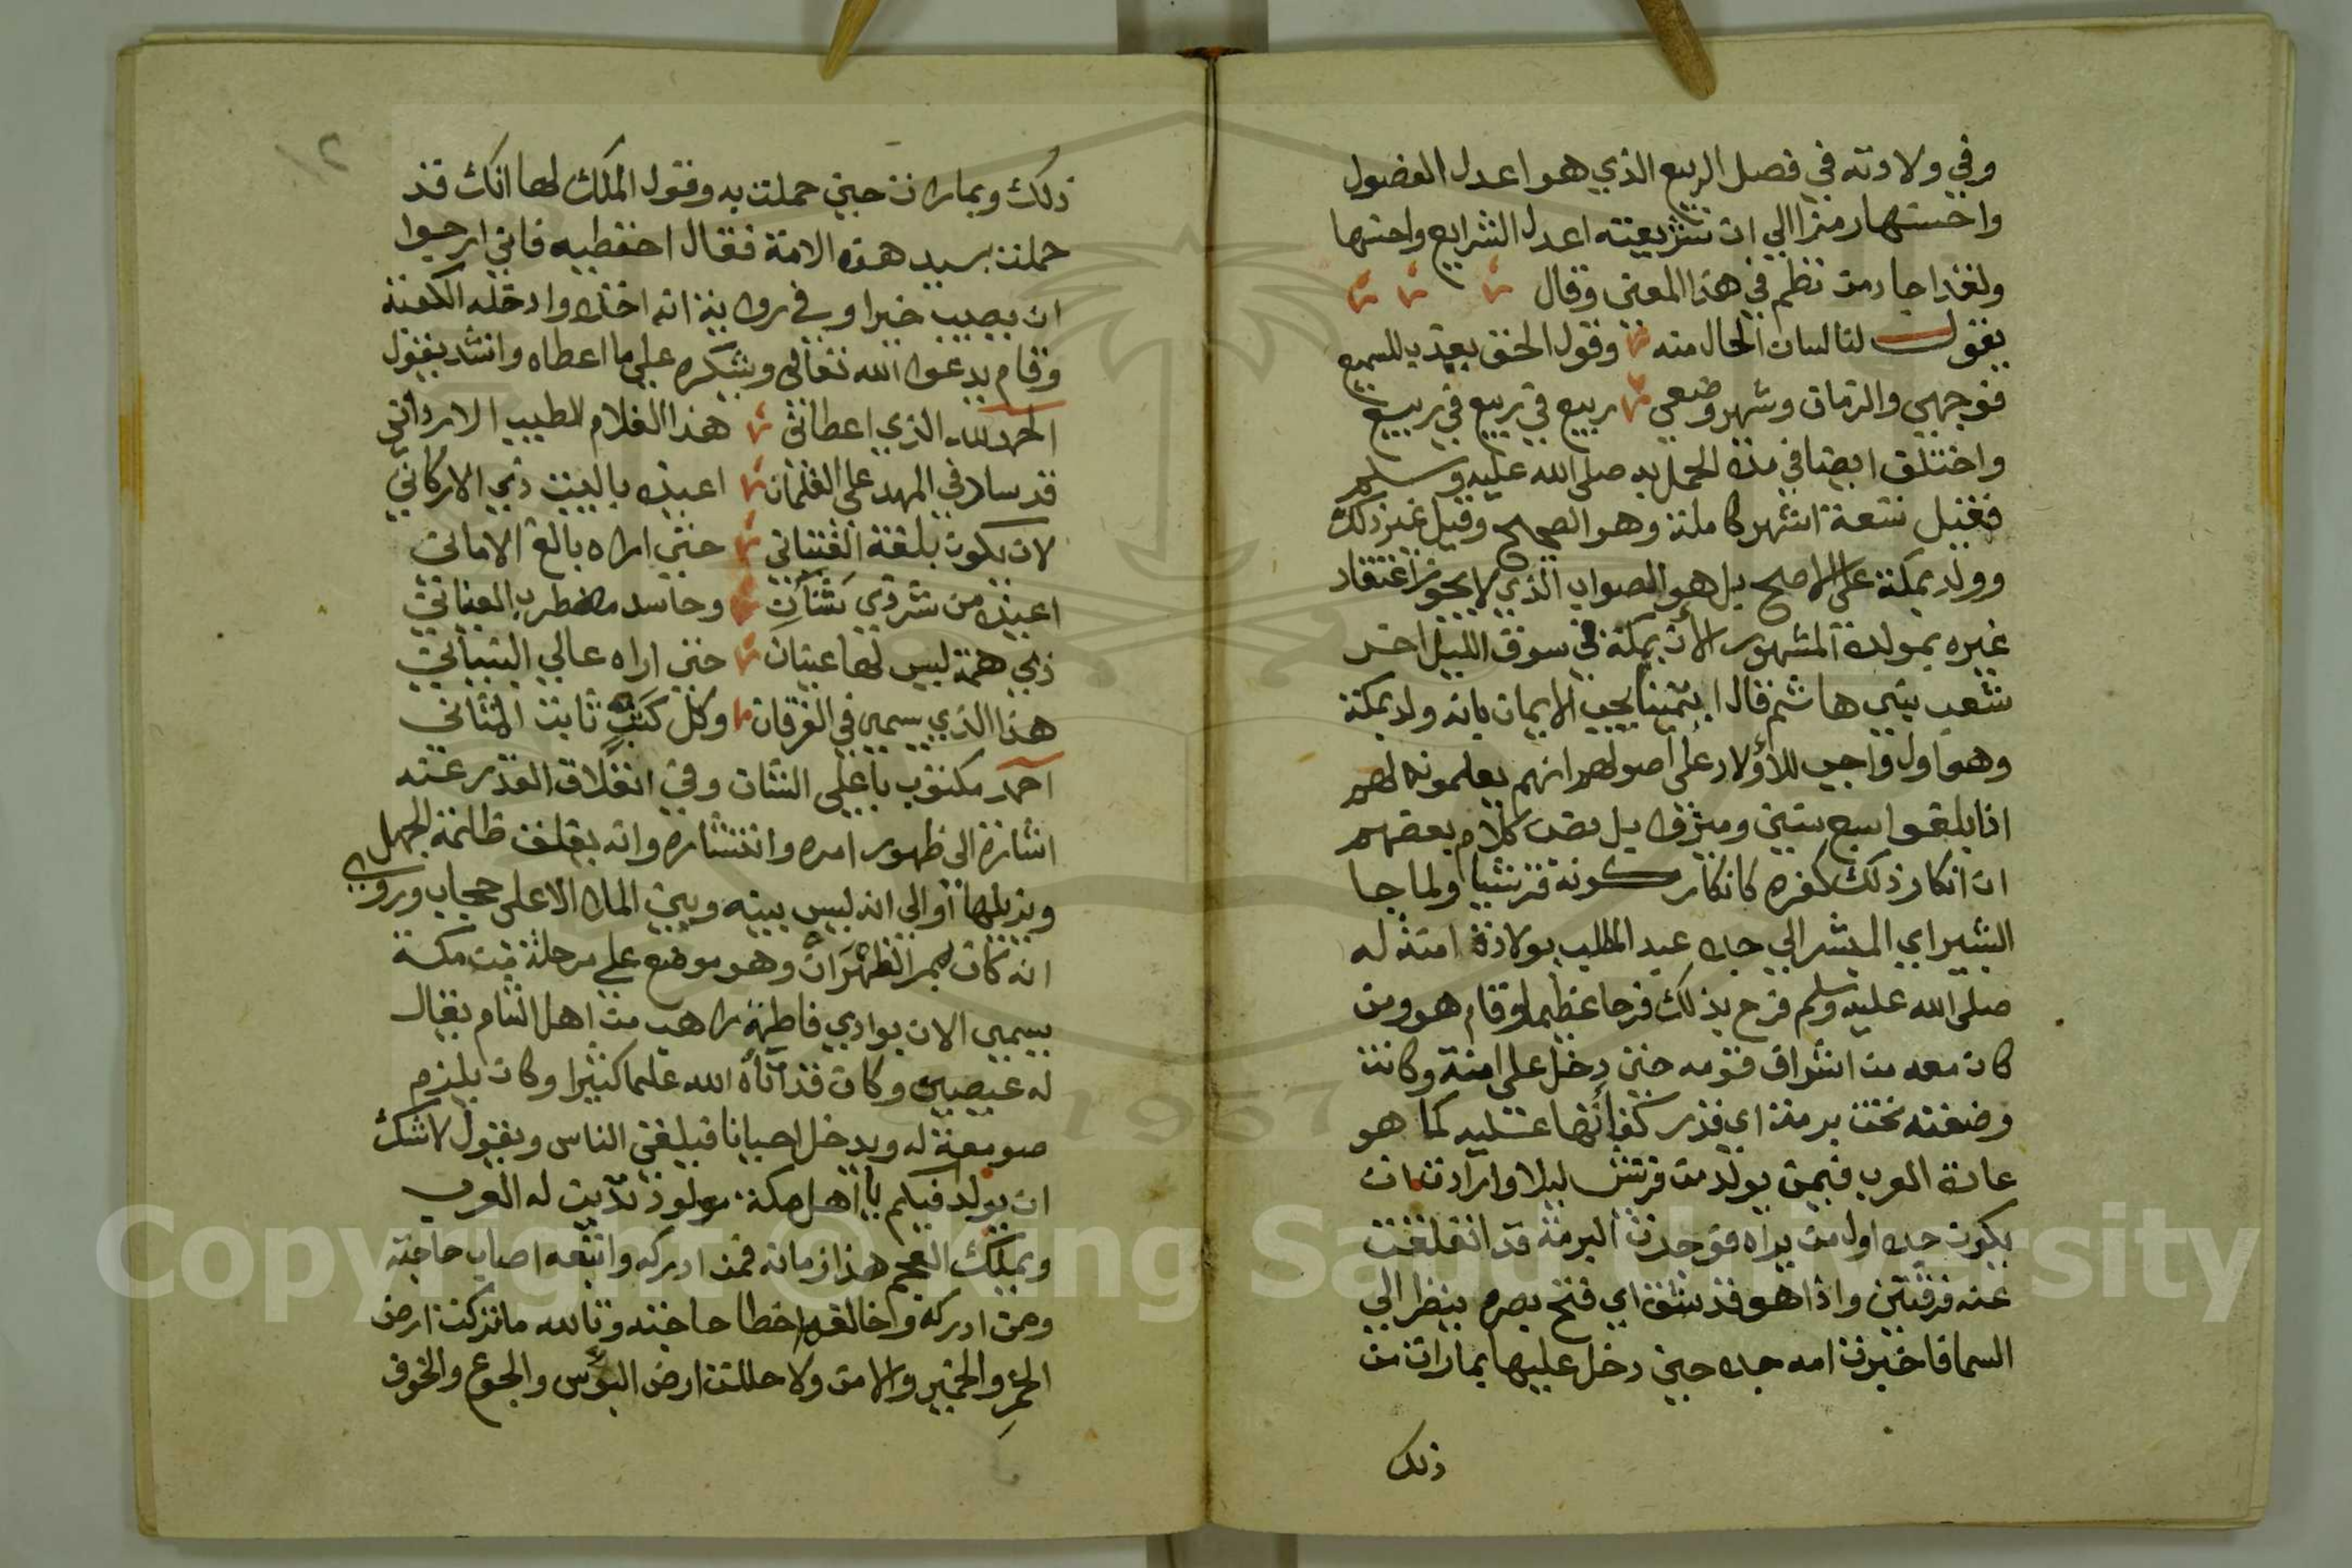 وفي ولادته في فصل الربيع الذي هو اعدل الفصول
واحسنها رمزا الي ان شريعته اعدل الشرايع واحسنها
ولقد اجاد من نظم في هذا المعني وقال
يقول لنا لسان الحال منه وقول الحق يعذب للسميع
فوجهي والزمان وشهر وضعي ربيع في ربيع في ربيع
واختلف ايضا في مدة الحمل به صلى الله عليه وسلم
فقيل تسعة اشهر كاملة وهو الصحيح وقيل غير ذلك
وولد بمكة علي الاصح بل هو الصواب الذي لا يجوز اعتقاد
غيره بمولده المشهور الأن بمكة في سوق الليل اخر
شعب بني هاشم قال ايمتنا يجب الايمان بانه ولد بمكة
وهو اول واجب للأولاد على اصولهم انهم يعلمونه لهم
اذا بلغوا سبع سنين وميزوا بل نص كلام بعضهم
ان انكار ذلك كفره كانكار كونه قرشيا ولما جا
البشير اي المبشر الي جده عبد المطلب بولادة امنة له
صلى الله عليه وسلم فرح بذلك فرحا عظيما وقام هو ومن
كان معه من اشراف قومه حتي دخل علي امنة وكانت
وضعته تحت برمة اي قدر كفأتها عليه كما هو
عادة العرب فيمن يولد من قريش ليلا وارادت ان
يكون جده اول من يراه فوجدت البرمة قد انفلقت
عنه فرقتين واذا هو قد شق اي فتح بصره ينظر الي
السما فاخبرت امه جده حين دخل عليها بما رات من
ذلك
ذلك وبما رات حين حملت به وقول الملك لها انك قد
حملت بسيد هذه الامة فقال احفظيه فاني ارجوا
ان يصيب خيرا وفي رواية انه اخذه وادخله الكعبة
وقام يدعوا الله تعالى ويشكره علي ما اعطاه وانشد يقول
الحمد لله الذي اعطاني هذا الغلام الطيب الارداني
قد ساد في المهد على الغلمان اعيذه بالبيت ذي الاركاني
لان يكون بلغة الفتياني حتي اراه بالغ الاماني
اعيذه من شر ذي شنآن وحاسد مضطرب العياني
ذي همة ليس لها عينان حتي اراه عالي البنياني
هذا الذي يسمي في الفرقان وكل كتب ثابت المثاني
احمد مكتوب باعلي الشان وفي انفلاق القدر عنه
اشارة الى ظهور امره وانتشاره وانه يفلق ظلمة الجهل
ويزيلها أو الي انه ليس بينه وبين الملا الاعلى حجاب وروي
انه كان بمر الظهران وهو موضع علي مرحلة من مكة
يسمي الان بوادي فاطمة راهب من اهل الشام يقال
له عيصي وكان قد آتاه الله علما كثيرا وكان يلزم
صومعة له ويدخل احيانا فيلقي الناس ويقول لا شك
ان يولد فيكم يا اهل مكة مولود تدين له العرب
ويملك العجم هذا زمانه فمن ادركه واتبعه اصاب حاجته
ومن ادركه وخالفه اخطا حاجته وتالله ما تركت ارض
الخمر والخمير والامن ولا حللت ارض البؤس والجوع والخوف